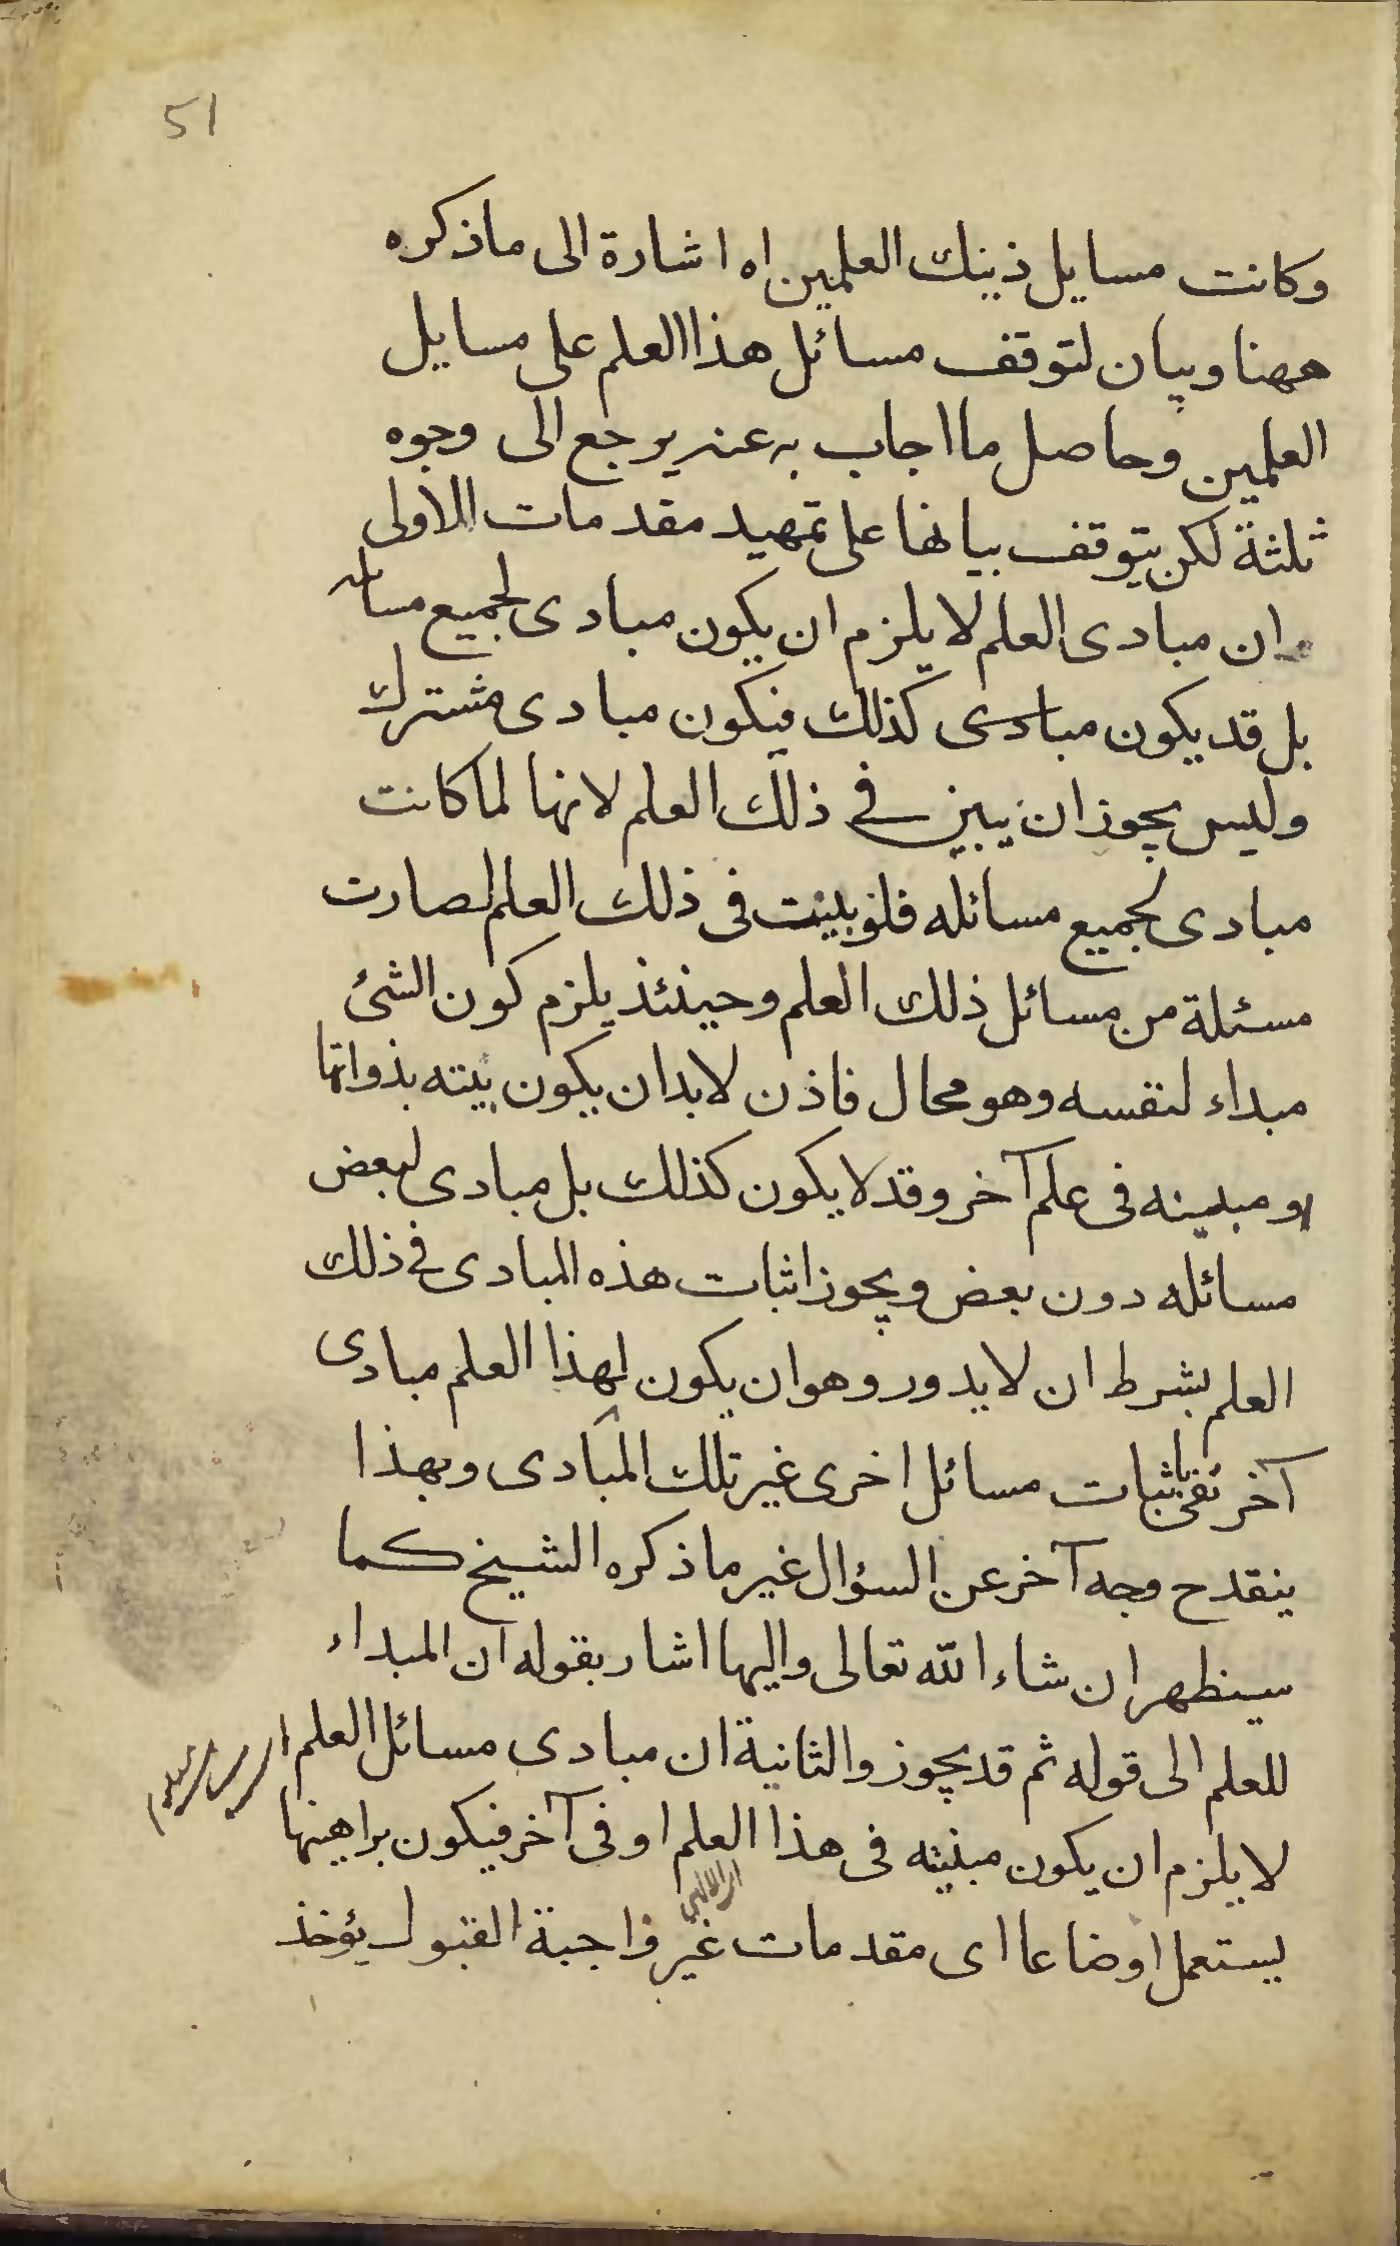 51
وكانت مسايل ذينك العلمين اه اشارة الى ما ذكره
ههنا وبيان لتوقف مسائل هذا العلم على مسايل
العلمين وحاصل ما اجاب به عنه يرجع الى وجوه
ثلثة لكن يتوقف بيانها على تمهيد مقدمات الاولى
ان مبادى العلم لا يلزم ان يكون مبادى لجميع مسائله
بل قد يكون مبادى كذلك فيكون مبادى مشترك
وليس يجوز ان يبين في ذلك العلم لانها لما كانت
مبادى لجميع مسائله فلو بينت فى ذلك العلم لصارت
مسئلة من مسائل ذلك العلم وحينئذ يلزم كون الشئ
مبداء لنفسه وهو محال فاذن لابد ان يكون بينه بذواتها
او مبينه فى علم آخر وقد لا يكون كذلك بل مبادى لبعض
مسائله دون بعض ويجوز اثبات هذه المبادى فى ذلك
العلم بشرط ان لا يدور وهو ان يكون لهذا العلم مبادى
آخر تفى باثبات مسائل اخرى غير تلك المبادى وبهذا
ينقدح وجه آخر عن السؤال غير ما ذكره الشيخ كما
سينظهر ان شاء الله تعالى واليها اشار بقوله ان المبداء
للعلم الى قوله ثم قد يجوز والثانية ان مبادى مسائل العلم
لا يلزم ان يكون مبنيته فى هذا العلم او فى آخر فيكون براهينها
يستعمل اوضاعا اى مقدمات غير واجبة القبول يؤخذ